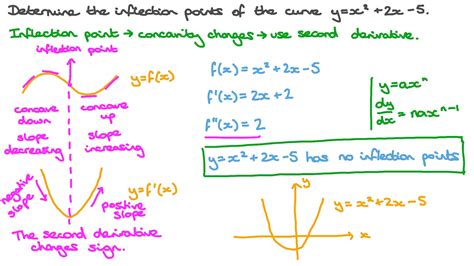 Determine the inflection points of the curve y=x²+2x-5.
Inflection point → concavity changes → use second derivative.
inflection point
y=f(x)
concave down
concave up
slope decreasing
slope increasing
negative slope
positive slope
y=f'(x)
The second derivative changes sign.
f(x) = x²+2x-5
f'(x) = 2x+2
f"(x) = 2
y=axⁿ
dy/dx = naxⁿ⁻¹
y=x²+2x-5 has no inflection points
y
y=x²+2x-5
x